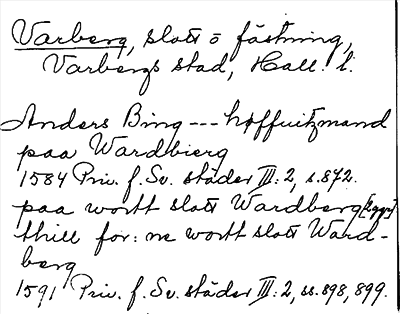 Varberg, slott o fästning,
Varbergs stad, Hall. l.
Anders Bing --- høffuitzmand
paa Wardbierg
1584 Priv. f. Sv. städer III: 2, s. 872.
paa wortt slott Wardberg
thill for: ne wortt slott Ward-
berg
1591 Priv. f. Sv. städer III: 2, ss. 898, 899.